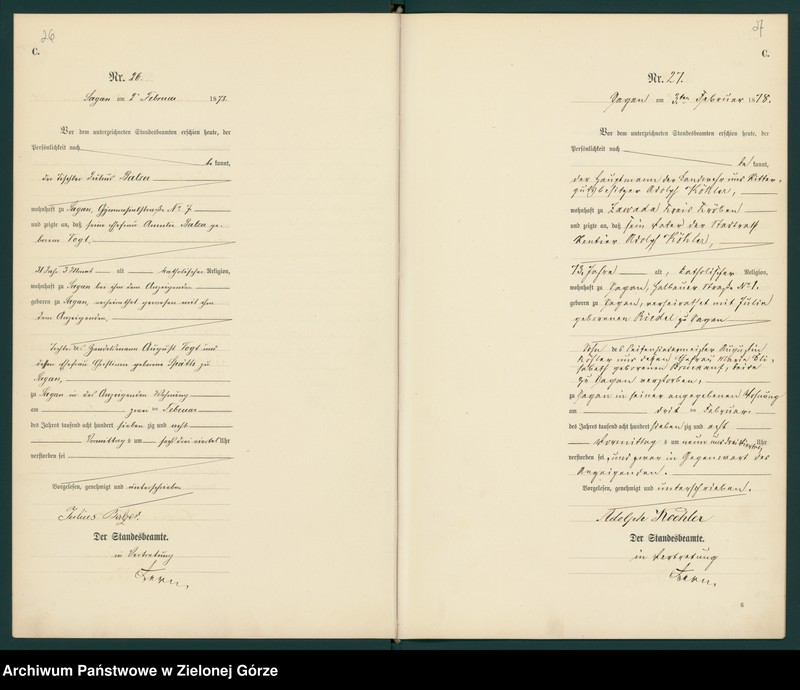 26
C.
Nr. 26.
Sagan am 2ten Februar 1878.
Vor dem unterzeichneten Standesbeamten erschien heute, der
Persönlichkeit nach
bekannt,
der Tischler Julius
wohnhaft zu Sagan, Gymnasialstraße No 7
und zeigte an, daß seine Ehefrau Amalie ge-
borene Vogt
31 Jahr 3 Monat alt katholischer Religion,
wohnhaft zu Sagan bei ihm dem Anzeigenden
geboren zu Sagan, verheirathet gewesen mit ihm
dem Anzeigenden
Tochter des Handelsmann August Vogt und
dessen Ehefrau Christiane geborene
Sagan,
zu Sagan in des Anzeigenden Wohnung
am zwei ten Februar
des Jahres tausend acht hundert sieben zig und acht
Vormittags um Uhr
verstorben sei
Vorgelesen, genehmigt und unterschrieben
Julius
Der Standesbeamte.
in Vertretung
27
C.
Nr. 27.
Sagan am 3ten Februar 1878.
Vor dem unterzeichneten Standesbeamten erschien heute, der
Persönlichkeit nach
bekannt,
der Hauptmann der Landwehr und Ritter-
gutsbesitzer Adolf Köhler,
wohnhaft zu Zawada Kreis Kröben
und zeigte an, daß sein Vater der Stadtrath
Rentier Adolf Köhler,
Jahre alt, katholischer Religion,
wohnhaft zu Sagan, Halbauer Straße No 1.
geboren zu Sagan, verheirathet mit Julia
geborenen Riedel zu Sagan
Sohn des Seifensiedermeister Augustin
Köhler und dessen Ehefrau Maria Eli-
sabeth geborenen beide
zu Sagan verstorben,
zu Sagan in seiner angegebenen Wohnung
am drit ten Februar
des Jahres tausend acht hundert sieben zig und acht
Vormittags um neun und drei Viertel Uhr
verstorben sei, und zwar in Gegenwart des
Anzeigenden.
Vorgelesen, genehmigt und unterschrieben.
Adolph Koehler
Der Standesbeamte.
in Vertretung
6
Archiwum Państwowe w Zielonej Górze